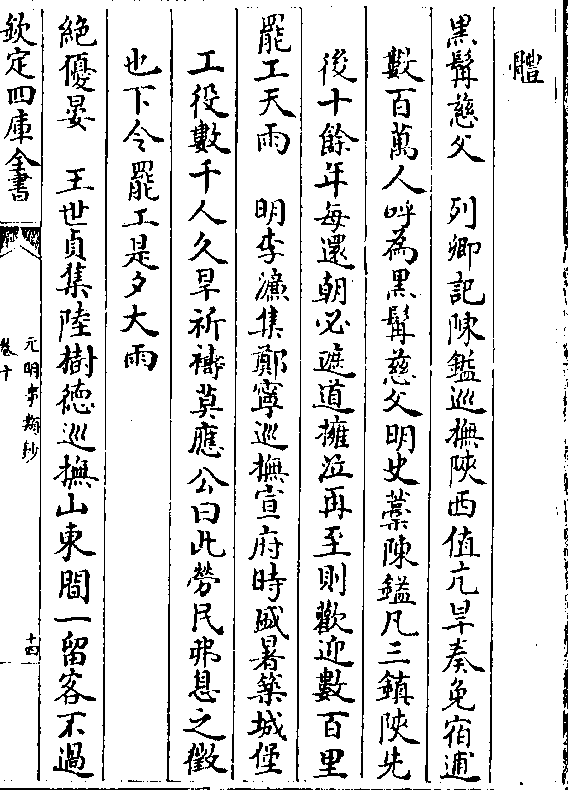 體
黒髯慈父　列卿記陳鎰巡撫陝西值亢旱奏免宿逋
數百萬人呼為黒髯慈父明史藁陳鎰凡三鎮陝先
後十餘年每還朝必遮道擁泣再至則歡迎數百里
罷工天雨　明李濂集鄭寧巡撫宣府時盛暑築城堡
工役數千人久旱祈禱莫應公曰此勞民弗息之徵
也下令罷工是夕大雨
絶優晏　王世貞集陸樹徳巡撫山東間一留客不過
欽定四庫全書
元明事類鈔
卷十
十四